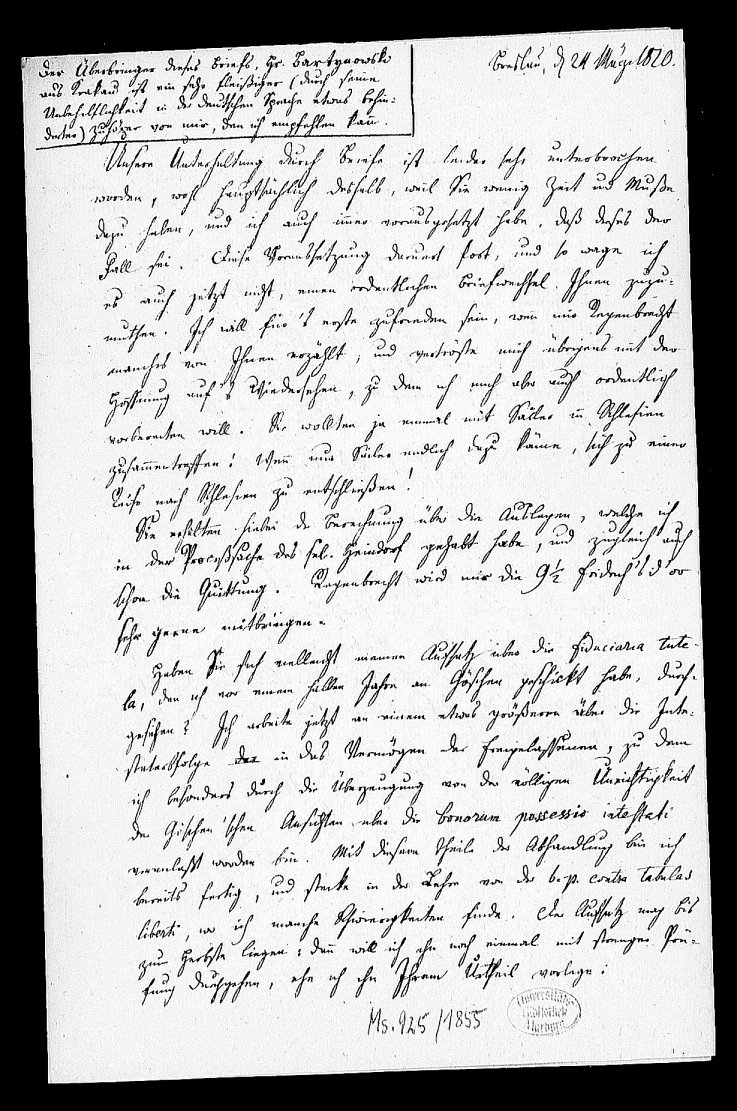 Der Überbringer dieses Briefs, Hr. Bartynowski
aus Krakau ist ein sehr fleißiger (durch seine
Unbehilflichkeit in der deutschen Sprache etwas behin-
derter) Zuhörer von mir, den ich empfehlen kann.
Breslau, d 24 März 1820.
Unsere Unterhaltung durch Briefe ist leider sehr unterbrochen
worden, wohl hauptsächlich deshalb, weil Sie wenig Zeit und Muße
dazu haben, und ich auch immer vorausgesetzt habe, daß dieses der
Fall sei. Diese Voraussetzung dauert fort, und so wage ich
es auch jetzt nicht, einen ordentlichen Briefwechsel Ihnen zuzu-
muthen. Ich will für's erste zufrieden sein, wenn mir Regenbrecht
manches von Ihnen erzählt, und vertröste mich übrigens mit der
Hoffnung auf's Wiedersehen, zu dem ich mich aber auch ordentlich
vorbereiten will. Sie wollten ja einmal mit Sailer in Schlesien
zusammentreffen! Wenn nur Sailer endlich dazu käme, sich zu einer
Reise nach Schlesien zu entschließen!
Sie erhalten hiebei die Berechnung über die Auslagen, welche ich
in der Proceßsache des sel. Heindorf gehabt habe, und zugleich auch
schon die Quittung. Regenbrecht wird mir die 9½ Friedrich's d'or
sehr gerne mitbringen.
Haben Sie sich vielleicht meinen Aufsatz über die fiduciaria tute-
la, den ich vor einem halben Jahre an Göschen geschickt habe, durch-
gesehen? Ich arbeite jetzt an einem etwas größeren über die Inte-
staterbfolge in das Vermögen der Freigelassenen, zu dem
ich besonders durch die Überzeugung von der völligen Unrichtigkeit
der Göschen'schen Ansichten über die bonorum possessio intestati
veranlaßt worden bin. Mit diesem Theile der Abhandlung bin ich
bereits fertig, und stecke in der Lehre von der b. p. contra tabulas
liberti, wo ich manche Schwierigkeiten finde. Der Aufsatz mag bis
zum Herbste liegen; dann will ich ihn noch einmal mit strenger Prü-
fung durchgehen, ehe ich ihn Ihrem Urtheil vorlege.
Ms. 925/1855
Universitäts
Bibliothek
Marburg